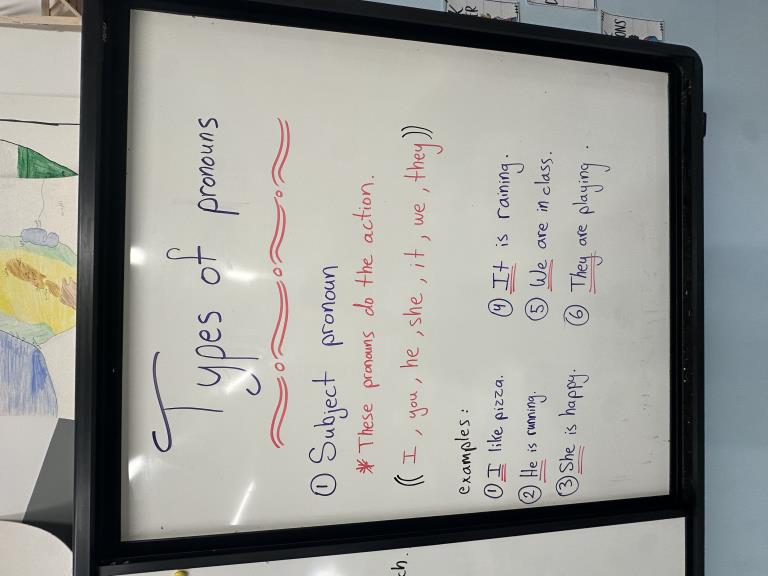 Types of pronouns
① Subject pronoun
* These pronouns do the action.
(( I , you , he , she , it , we , they ))
examples :
① I like pizza.
② He is running.
③ She is happy.
④ It is raining.
⑤ We are in class.
⑥ They are playing .
ch.